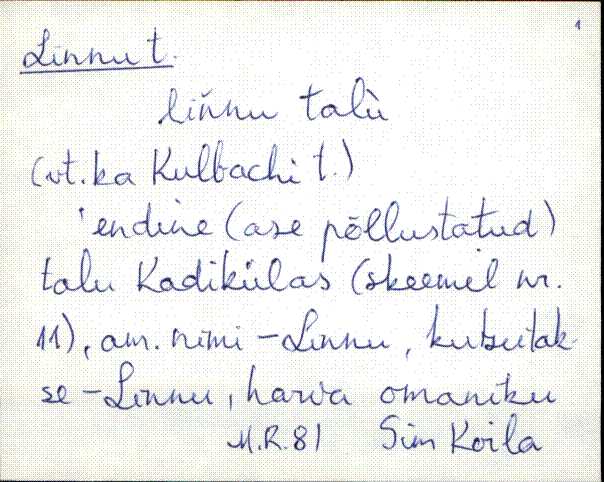 1
Linnu t.
liňnu talù
(vt. ka Kulbachi t.)
'endine (ase põllustatud)
talu Kadikülas (skeemil nr.
11), am. nimi – Linnu, kutsutak-
se – Linnu, harva omaniku
M.R. 81 Sim Koila